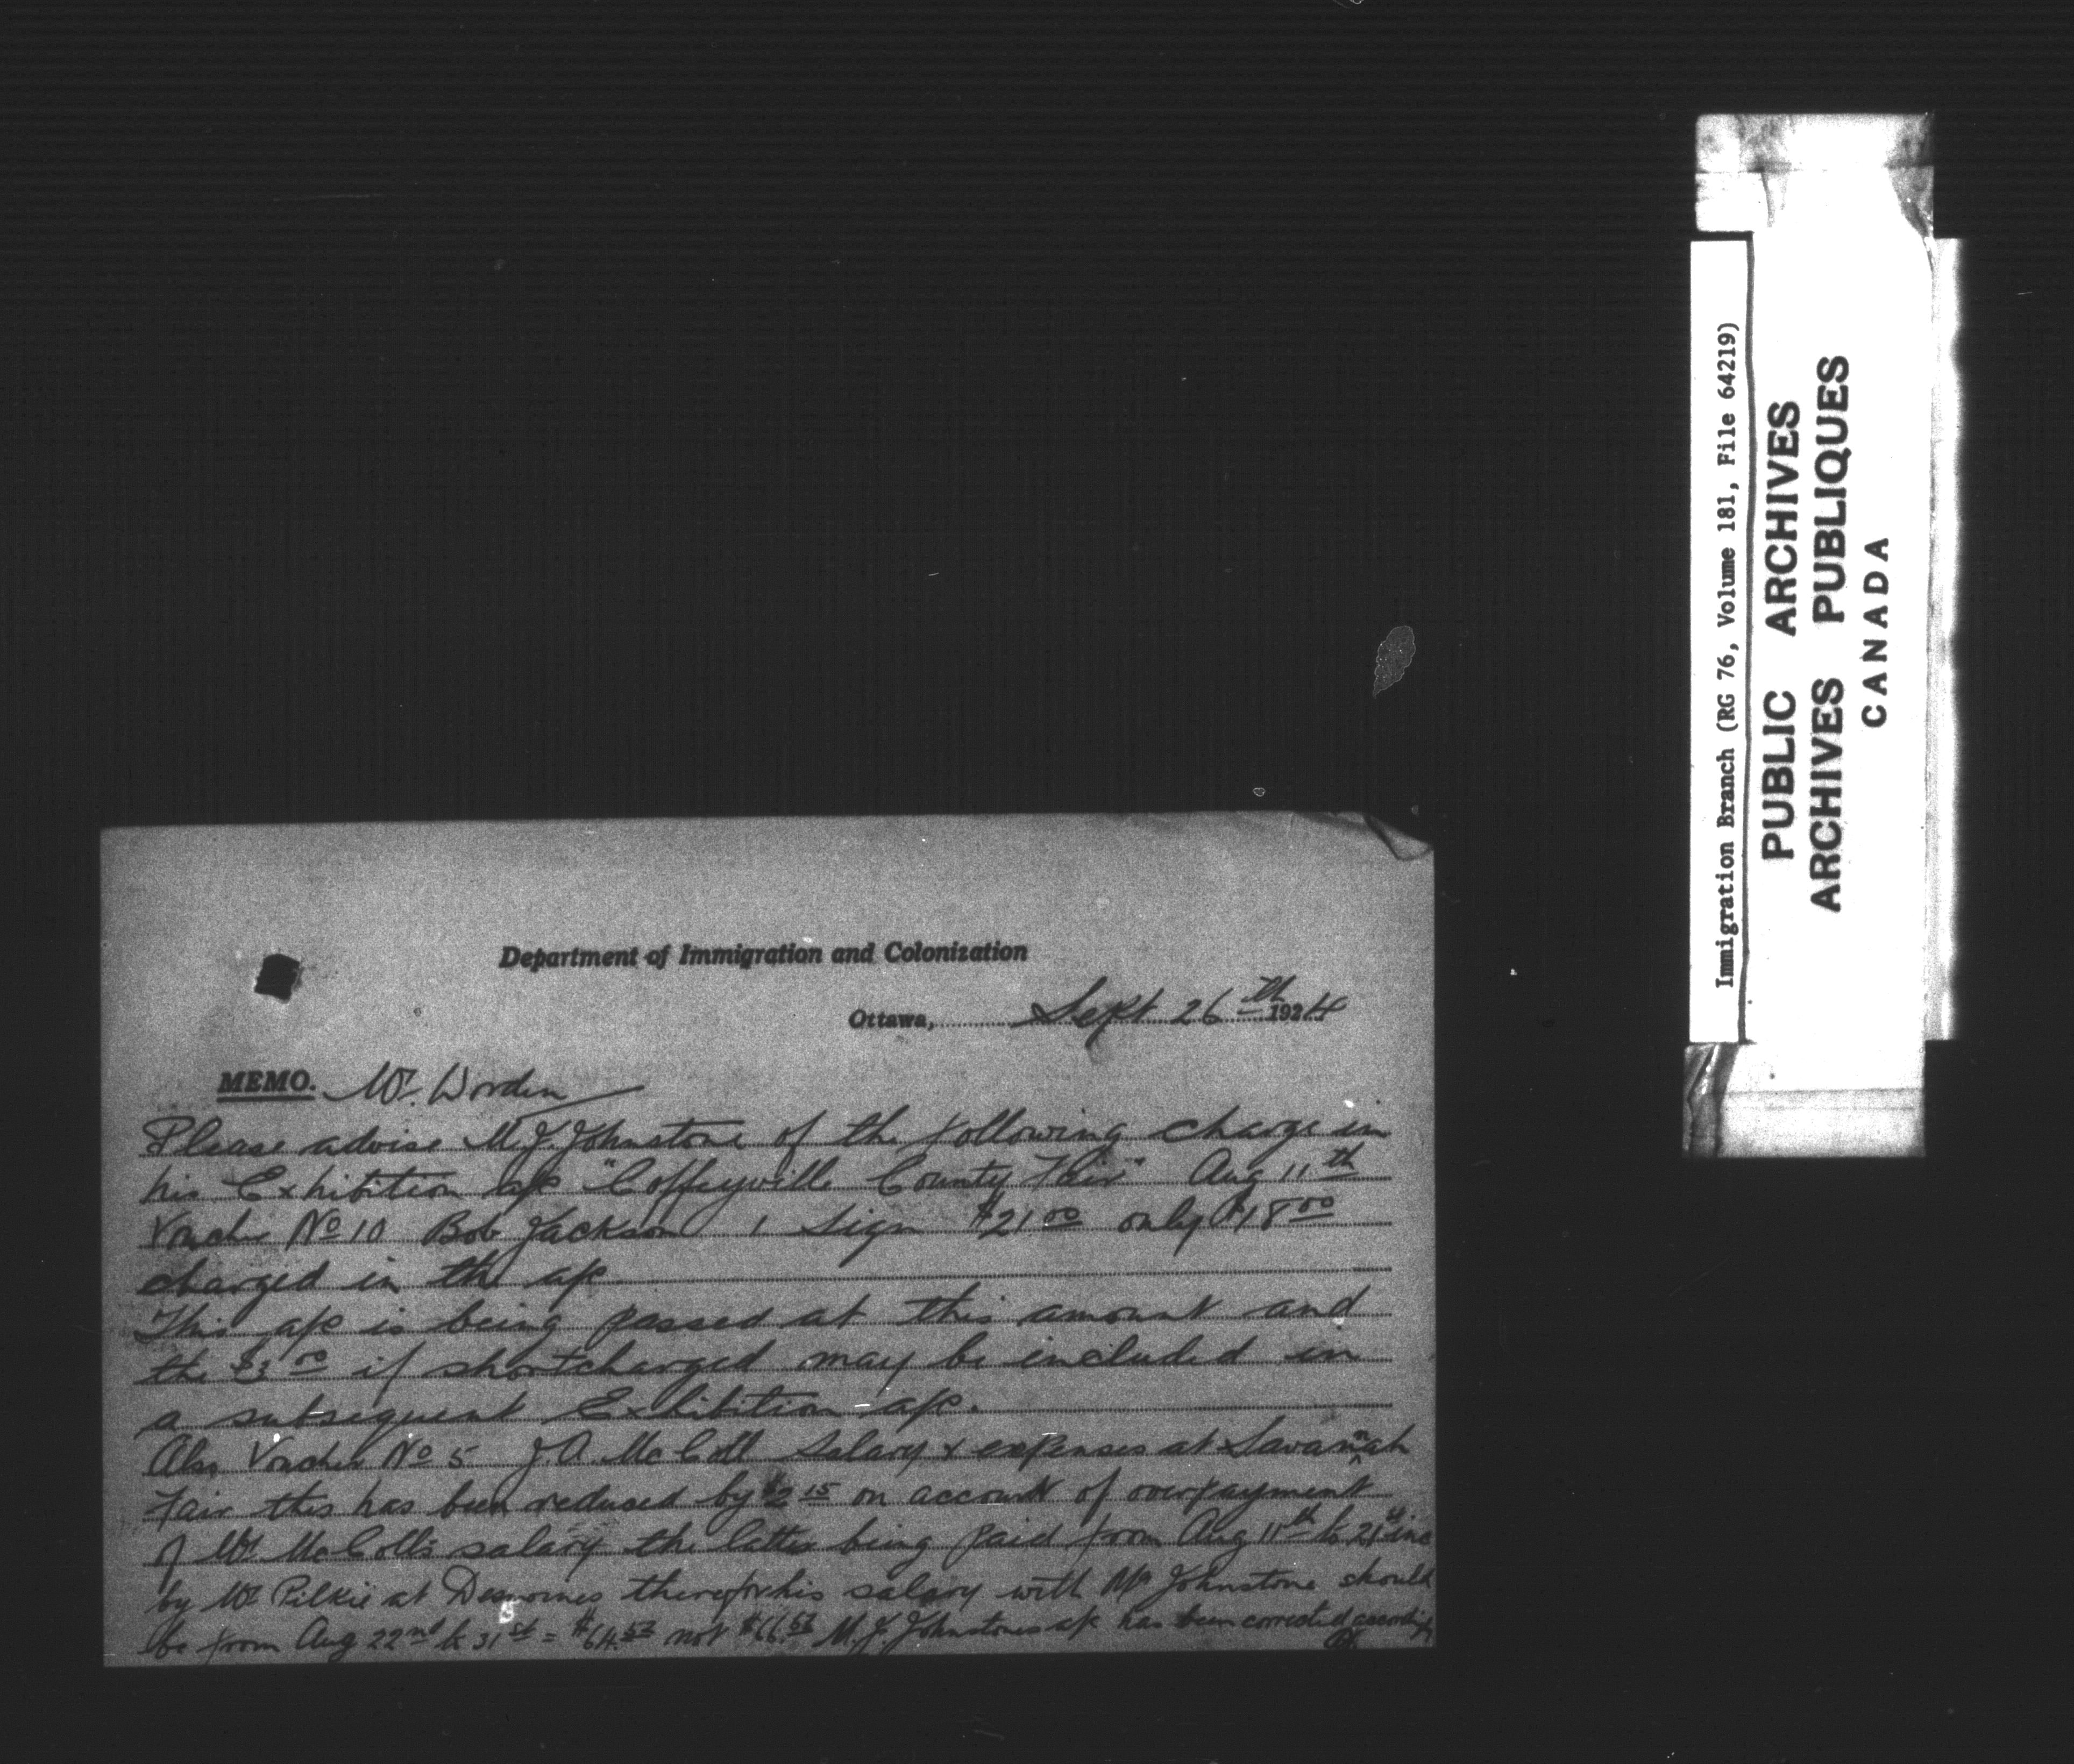 Department of Immigration and Colonization
Ottawa, Sept 26th 1924
MEMO. Mr. Worden
Please advise M.J. Johnstone of the following charge in
his Exhibition a/c "Coffeyville County Fair" Aug 11th
Voucher No 10 Bob Jackson 1 Sign $21 00 only $18 00
charged in the a/c
This a/c is being passed at this amount and
the $3 00 if shortcharged may be included in
a subsequent Exhibition a/c.
Also Voucher No 5 J.A. McColl Salary & expenses at Savannah
Fair this has been reduced by $2 15 on account of overpayment
of Mr McColl's salary the latter being paid from Aug 11th to 21st inc
by Mr Pilkie at Desmoines therefor his salary with Mr Johnstone should
be from Aug 22nd to 31st = $64. 52 not $66. 67 M.J. Johnstones a/c has been corrected accordingly
Immigration Branch (RG 76, Volume 181, File 64219)
PUBLIC ARCHIVES
ARCHIVES PUBLIQUES
CANADA